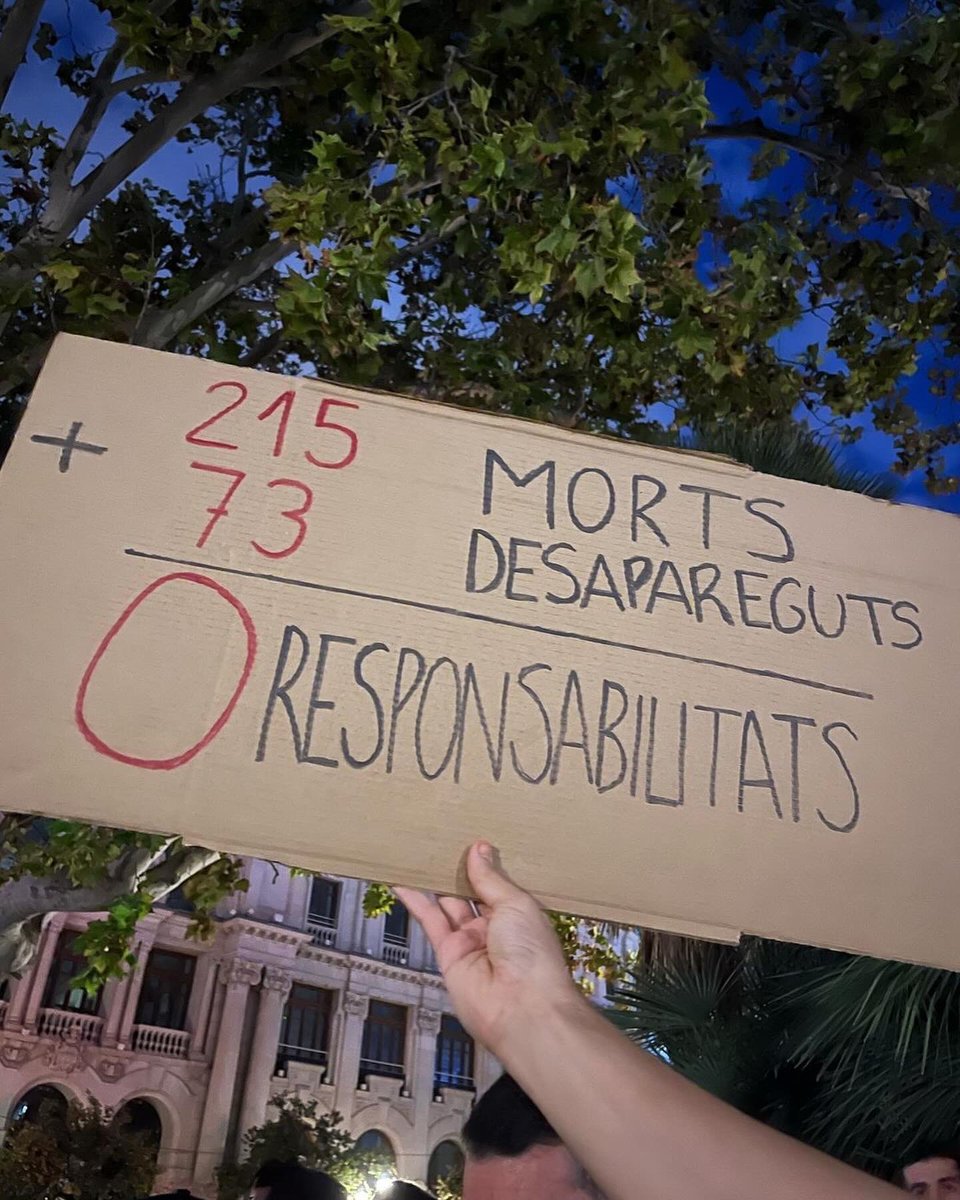 215 MORTS
+ 73 DESAPAREGUTS
0 RESPONSABILITATS